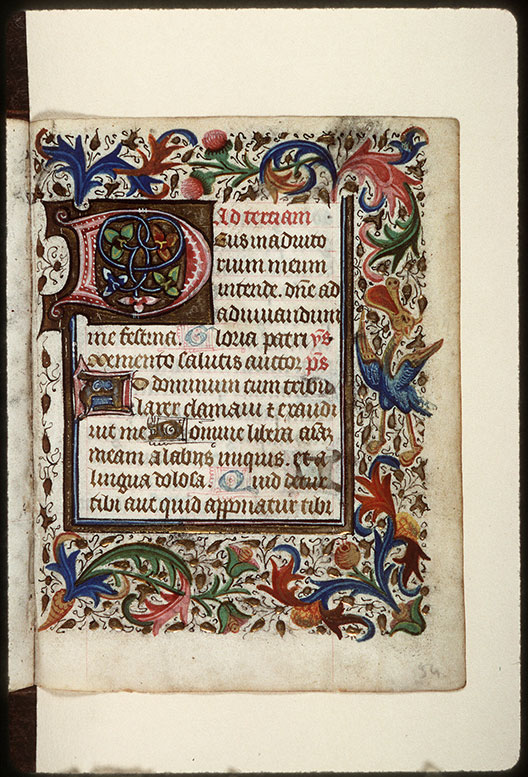 Ad terciam
Deus in adiuto
rium meum
intende. dne ad
adiuuandum
me festina. Gloria patri ys
Memento salutis auctor ps
Ad dominum cum tribu
larer clamaui et exaudi
uit me Domine libera aiam
meam a labijs iniquis. et a
lingua dolosa. Quid detur
tibi aut quid apponatur tibi
54